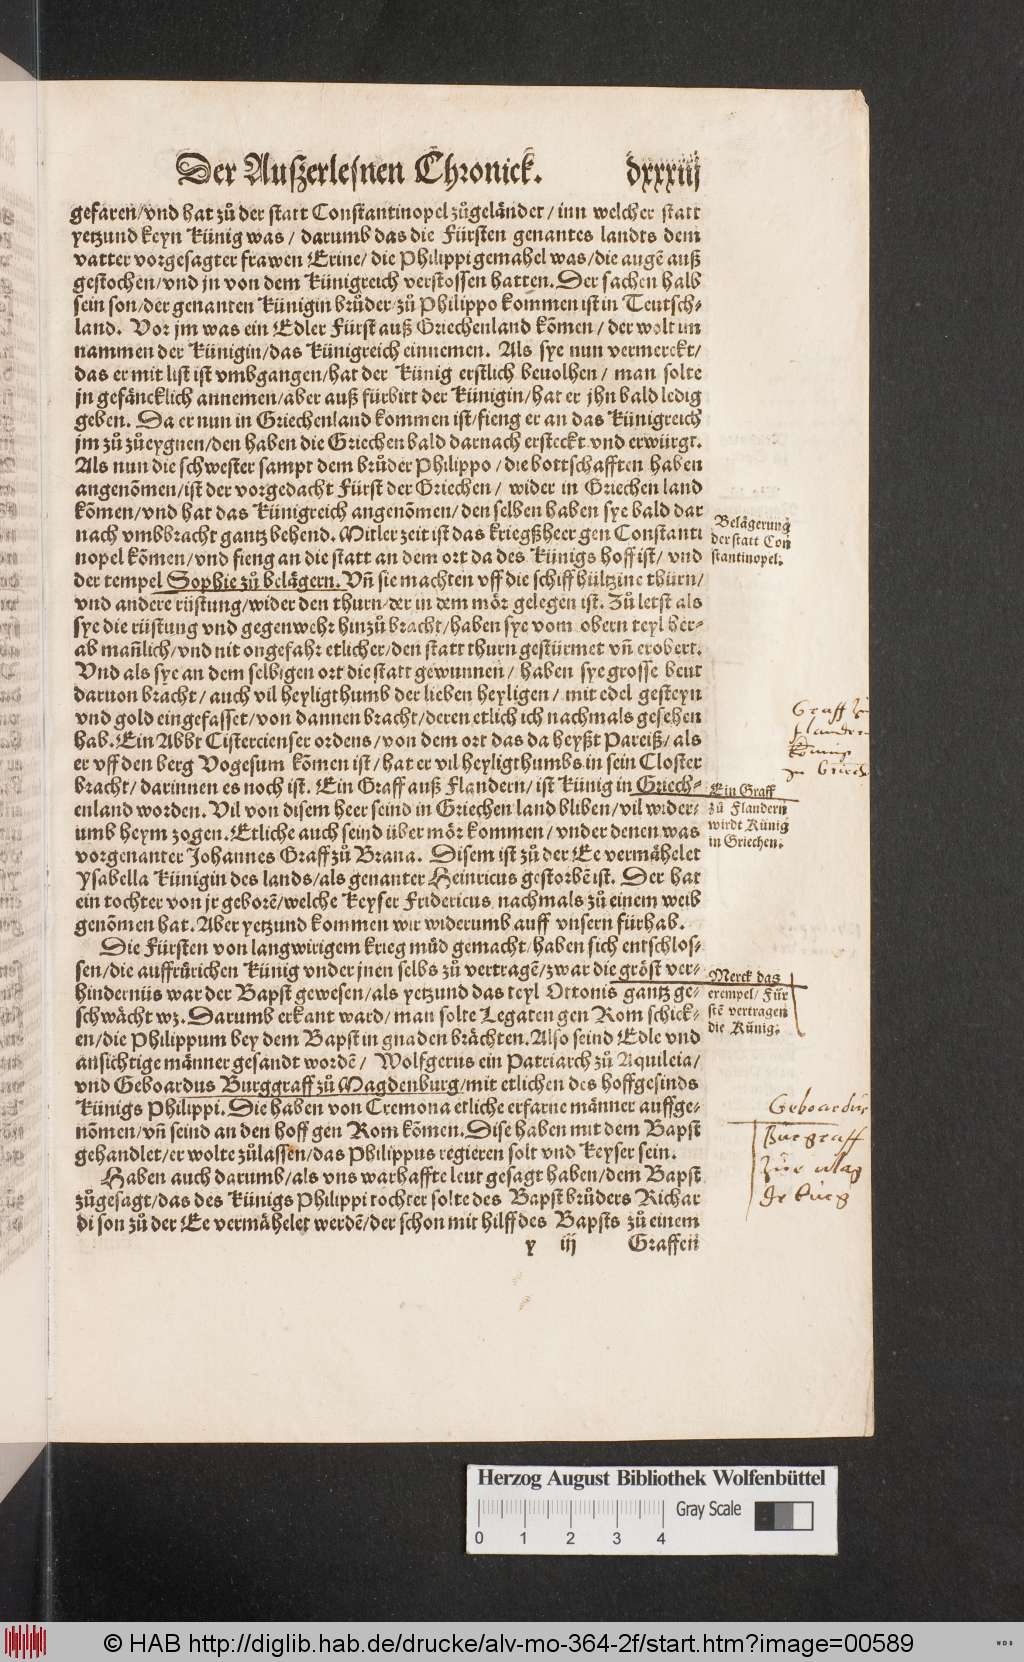 Der Außerlesnen Chronick. dxxxiij
gefaren/vnd hat zů der statt Constantinopel zůgeländet/ inn welcher statt
yetzund keyn Künig was/ darumb das die Fürsten genantes landts dem
vatter vorgesagter frawen Erine/ die Philippi gemahel was/die augẽ auß
gestochen/vnd jn von dem Künigreich verstossen hatten. Der sachen halb
sein son/der genanten Künigin brůder/zů Philippo kommen ist in Teutsch-
land. Vor jm was ein Edler Fürst auß Griechenland kõmen/ der wolt im
nammen der Künigin/das Künigreich einnemen. Als sye nun vermerckt/
das er mit list ist vmbgangen/hat der Künig erstlich beuolhen/ man solte
jn gefäncklich annemen/aber auß fürbitt der Künigin/hat er jhn bald ledig
geben. Da er nun in Griechenland kommen ist/fieng er an das Künigreich
jm zů zůeygnen/den haben die Griechen bald darnach ersteckt vnd erwürgt.
Als nun die schwester sampt dem brůder Philippo/die bottschafften haben
angenõmen/ist der vorgedacht Fürst der Griechen/ wider in Griechen land
kõmen/vnd hat das Künigreich angenõmen/den selben haben sye bald dar
nach vmbbracht gantz behend. Mitler zeit ist das kriegßheer gen Constanti
nopel kõmen/vnd fieng an die statt an dem ort da des Künigs hoff ist/ vnd
der tempel Sophie zů belägern. Vñ sie machten vff die schiff hültzine thürn/
vnd andere rüstung/wider den thurn/der in dem mör gelegen ist. Zů letst als
sye die rüstung vnd gegenwehr hinzů bracht/haben sye vom obern teyl her-
ab mañlich/vnd nit ongefahr etlicher/den statt thurn gestürmet vñ erobert.
Vnd als sye an dem selbigen ort die statt gewunnen/ haben sye grosse beut
daruon bracht/ auch vil heyligthumb der lieben heyligen/ mit edel gesteyn
vnd gold eingefasset/von dannen bracht/deren etlich ich nachmals gesehen
hab. Ein Abbt Cistercienser ordens/von dem ort das da heyßt Pareiß/ als
er vff den berg Vogesum kõmen ist/ hat er vil heyligthumbs in sein Closter
bracht/ darinnen es noch ist. Ein Graff auß Flandern/ ist Künig in Griech-
enland worden. Vil von disem heer seind in Griechen land bliben/ vil wider-
umb heym zogen. Etliche auch seind über mör kommen/ vnder denen was
vorgenanter Johannes Graff zů Brana. Disem ist zů der Ee vermähelet
Ysabella Künigin des lands/als genanter Heinricus gestorbẽ ist. Der hat
ein tochter von jr geborẽ/welche Keyser Fridericus nachmals zů einem weib
genõmen hat. Aber yetzund kommen wir widerumb auff vnsern fürhab.
Die Fürsten von langwirigem krieg můd gemacht/haben sich entschlos-
sen/die auffrürichen Künig vnder jnen selbs zů vertragẽ/zwar die gröst ver-
hindernüs war der Bapst gewesen/als yetzund das teyl Ottonis gantz ge-
schwächt wz. Darumb erkant ward/ man solte Legaten gen Rom schick-
en/die Philippum bey dem Bapst in gnaden brächten. Also seind Edle vnd
ansichtige männer gesandt wordẽ/ Wolfgerus ein Patriarch zů Aquileia/
vnd Geboardus Burggraff zů Magdenburg/mit etlichen des hoffgesinds
Künigs Philippi. Die haben von Cremona etliche erfarne männer auffge-
nõmen/vñ seind an den hoff gen Rom kõmen. Dise haben mit dem Bapst
gehandlet/er wolte zůlassen/das Philippus regieren solt vnd Keyser sein.
Haben auch darumb/als vns warhaffte leut gesagt haben/dem Bapst
zůgesagt/das des Künigs Philippi tochter solte des Bapst brůders Richar
di son zů der Ee vermähelet werdẽ/der schon mit hilff des Bapsts zů einem
y iij Graffen
Belägerung
der statt Con
stantinopel.
Graff
Flandern
König
zu Griech
Ein Graff
zů Flandern
wirdt Künig
in Griechen.
Merck das
exempel/ Für
stẽ vertragen
die Künig.
Geboardus
Burgraff
zue Mag
deburg
Herzog August Bibliothek Wolfenbüttel
Gray Scale
0 1 2 3 4
© HAB http://diglib.hab.de/drucke/alv-mo-364-2f/start.htm?image=00589